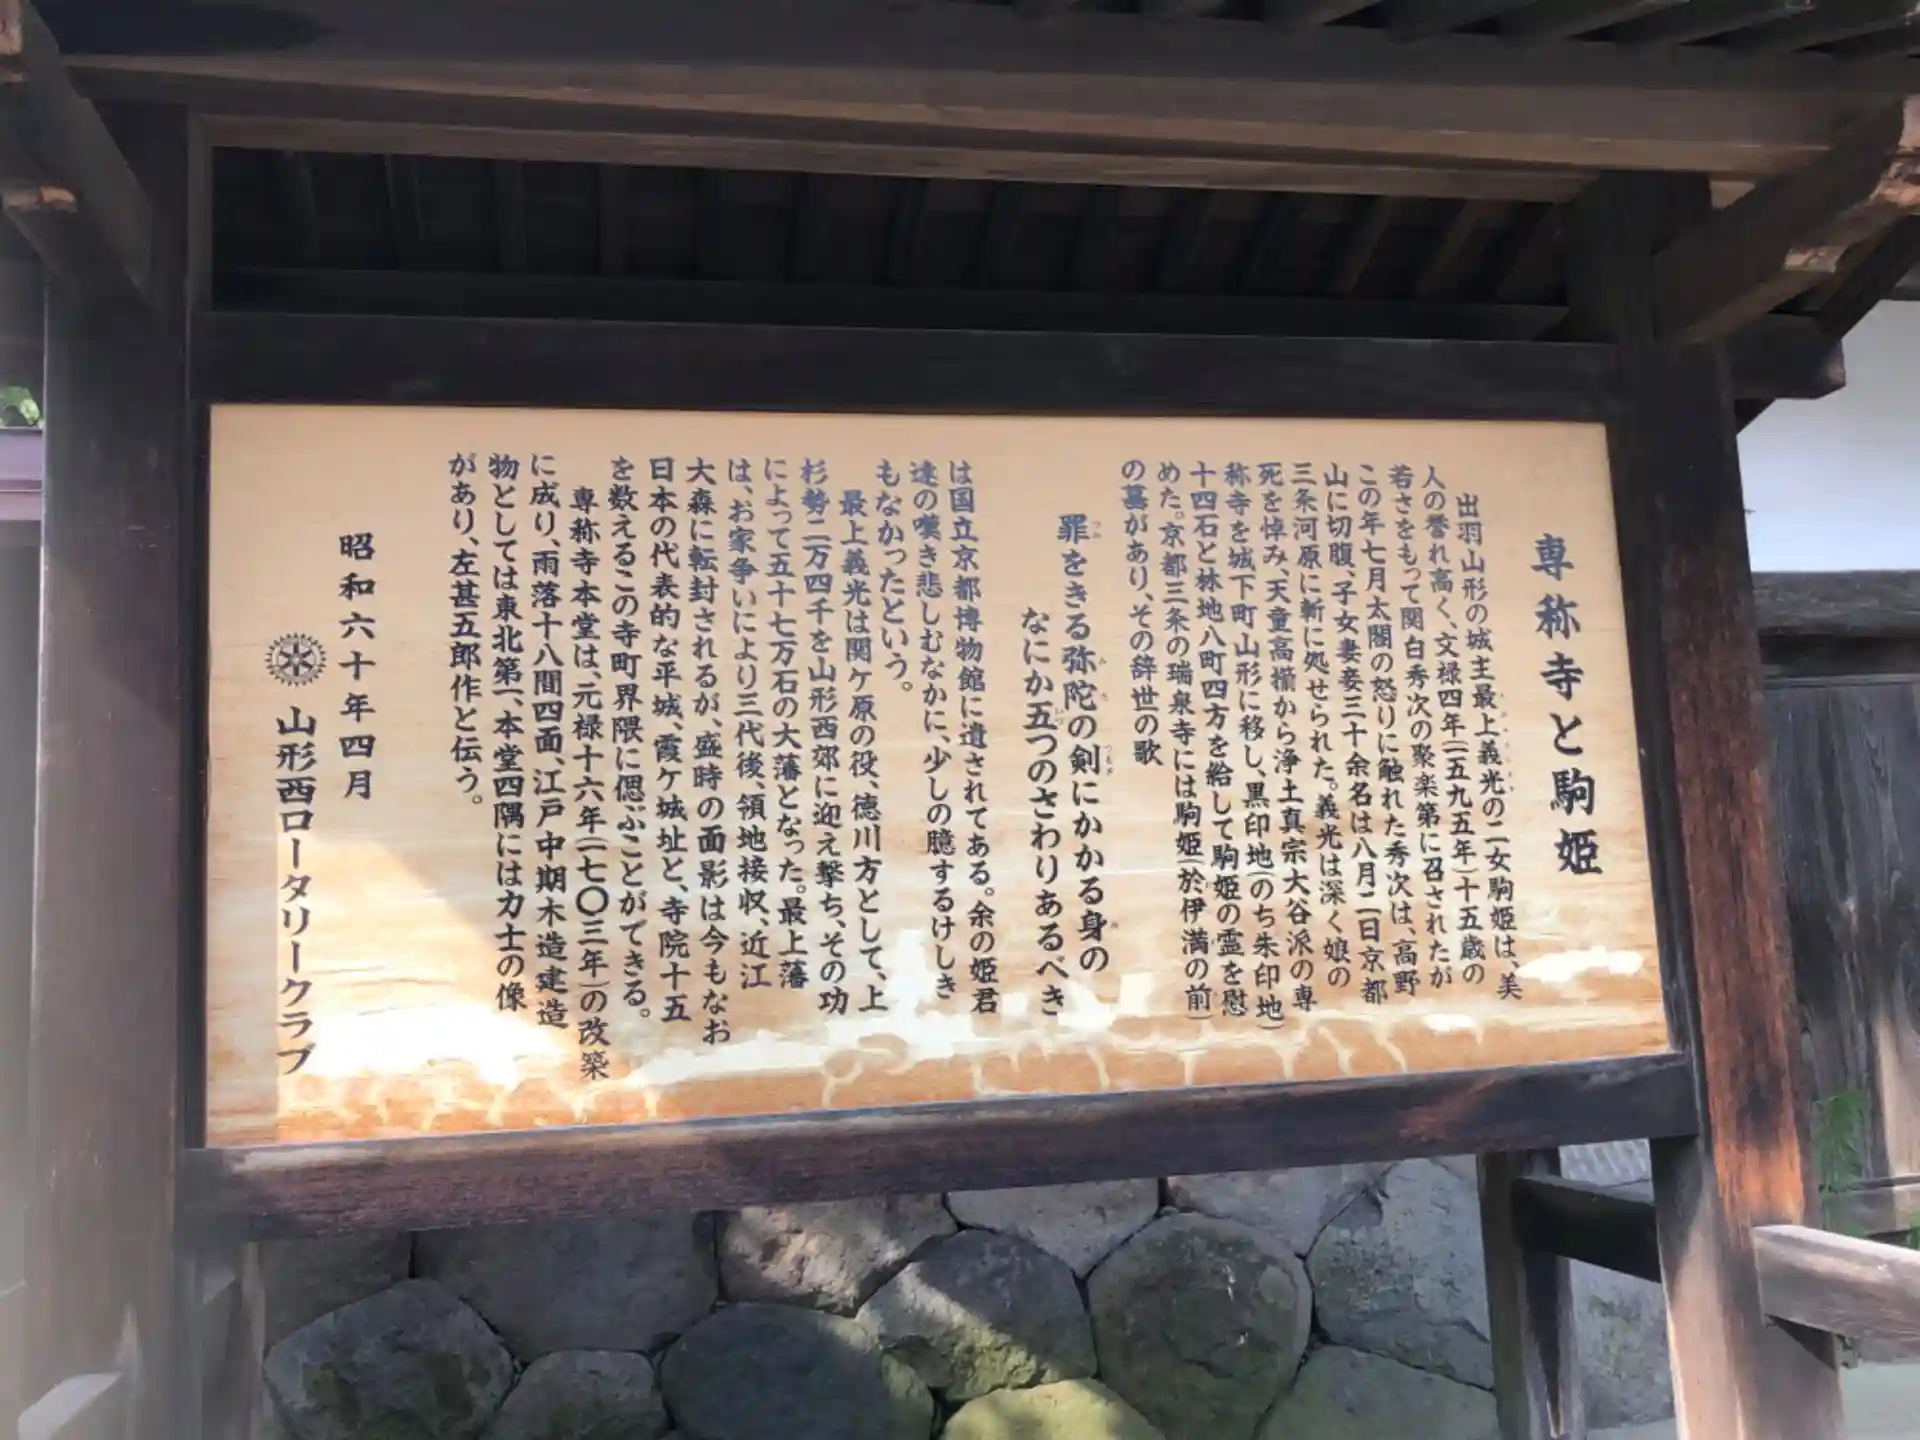 専称寺と駒姫
出羽山形の城主最上義光の二女駒姫は、美
人の誉れ高く、文禄四年(一五九五年)十五歳の
若さをもって関白秀次の聚楽第に召されたが
この年七月太閤の怒りに触れた秀次は、高野
山に切腹、子女妻妾三十余名は八月二日京都
三条河原に斬に処せられた。義光は深く娘の
死を悼み、天童高擶から浄土真宗大谷派の専
称寺を城下町山形に移し、黒印地(のち朱印地)
十四石と林地八町四方を給して駒姫の霊を慰
めた。京都三条の瑞泉寺には駒姫(於伊満の前)
の墓があり、その辞世の歌
罪をきる弥陀の剣にかかる身の
なにか五つのさわりあるべき
は国立京都博物館に遺されてある。余の姫君
達の嘆き悲しむなかに、少しの臆するけしき
もなかったという。
最上義光は関ケ原の役、徳川方として、上
杉勢二万四千を山形西郊に迎え撃ち、その功
によって五十七万石の大藩となった。最上藩
は、お家争いにより三代後、領地接収、近江
大森に転封されるが、盛時の面影は今もなお
日本の代表的な平城、霞ケ城址と、寺院十五
を数えるこの寺町界隈に偲ぶことができる。
専称寺本堂は、元禄十六年(一七〇三年)の改築
に成り、雨落十八間四面、江戸中期木造建造
物としては東北第一、本堂四隅には力士の像
があり、左甚五郎作と伝う。
昭和六十年四月
山形西ロータリークラブ